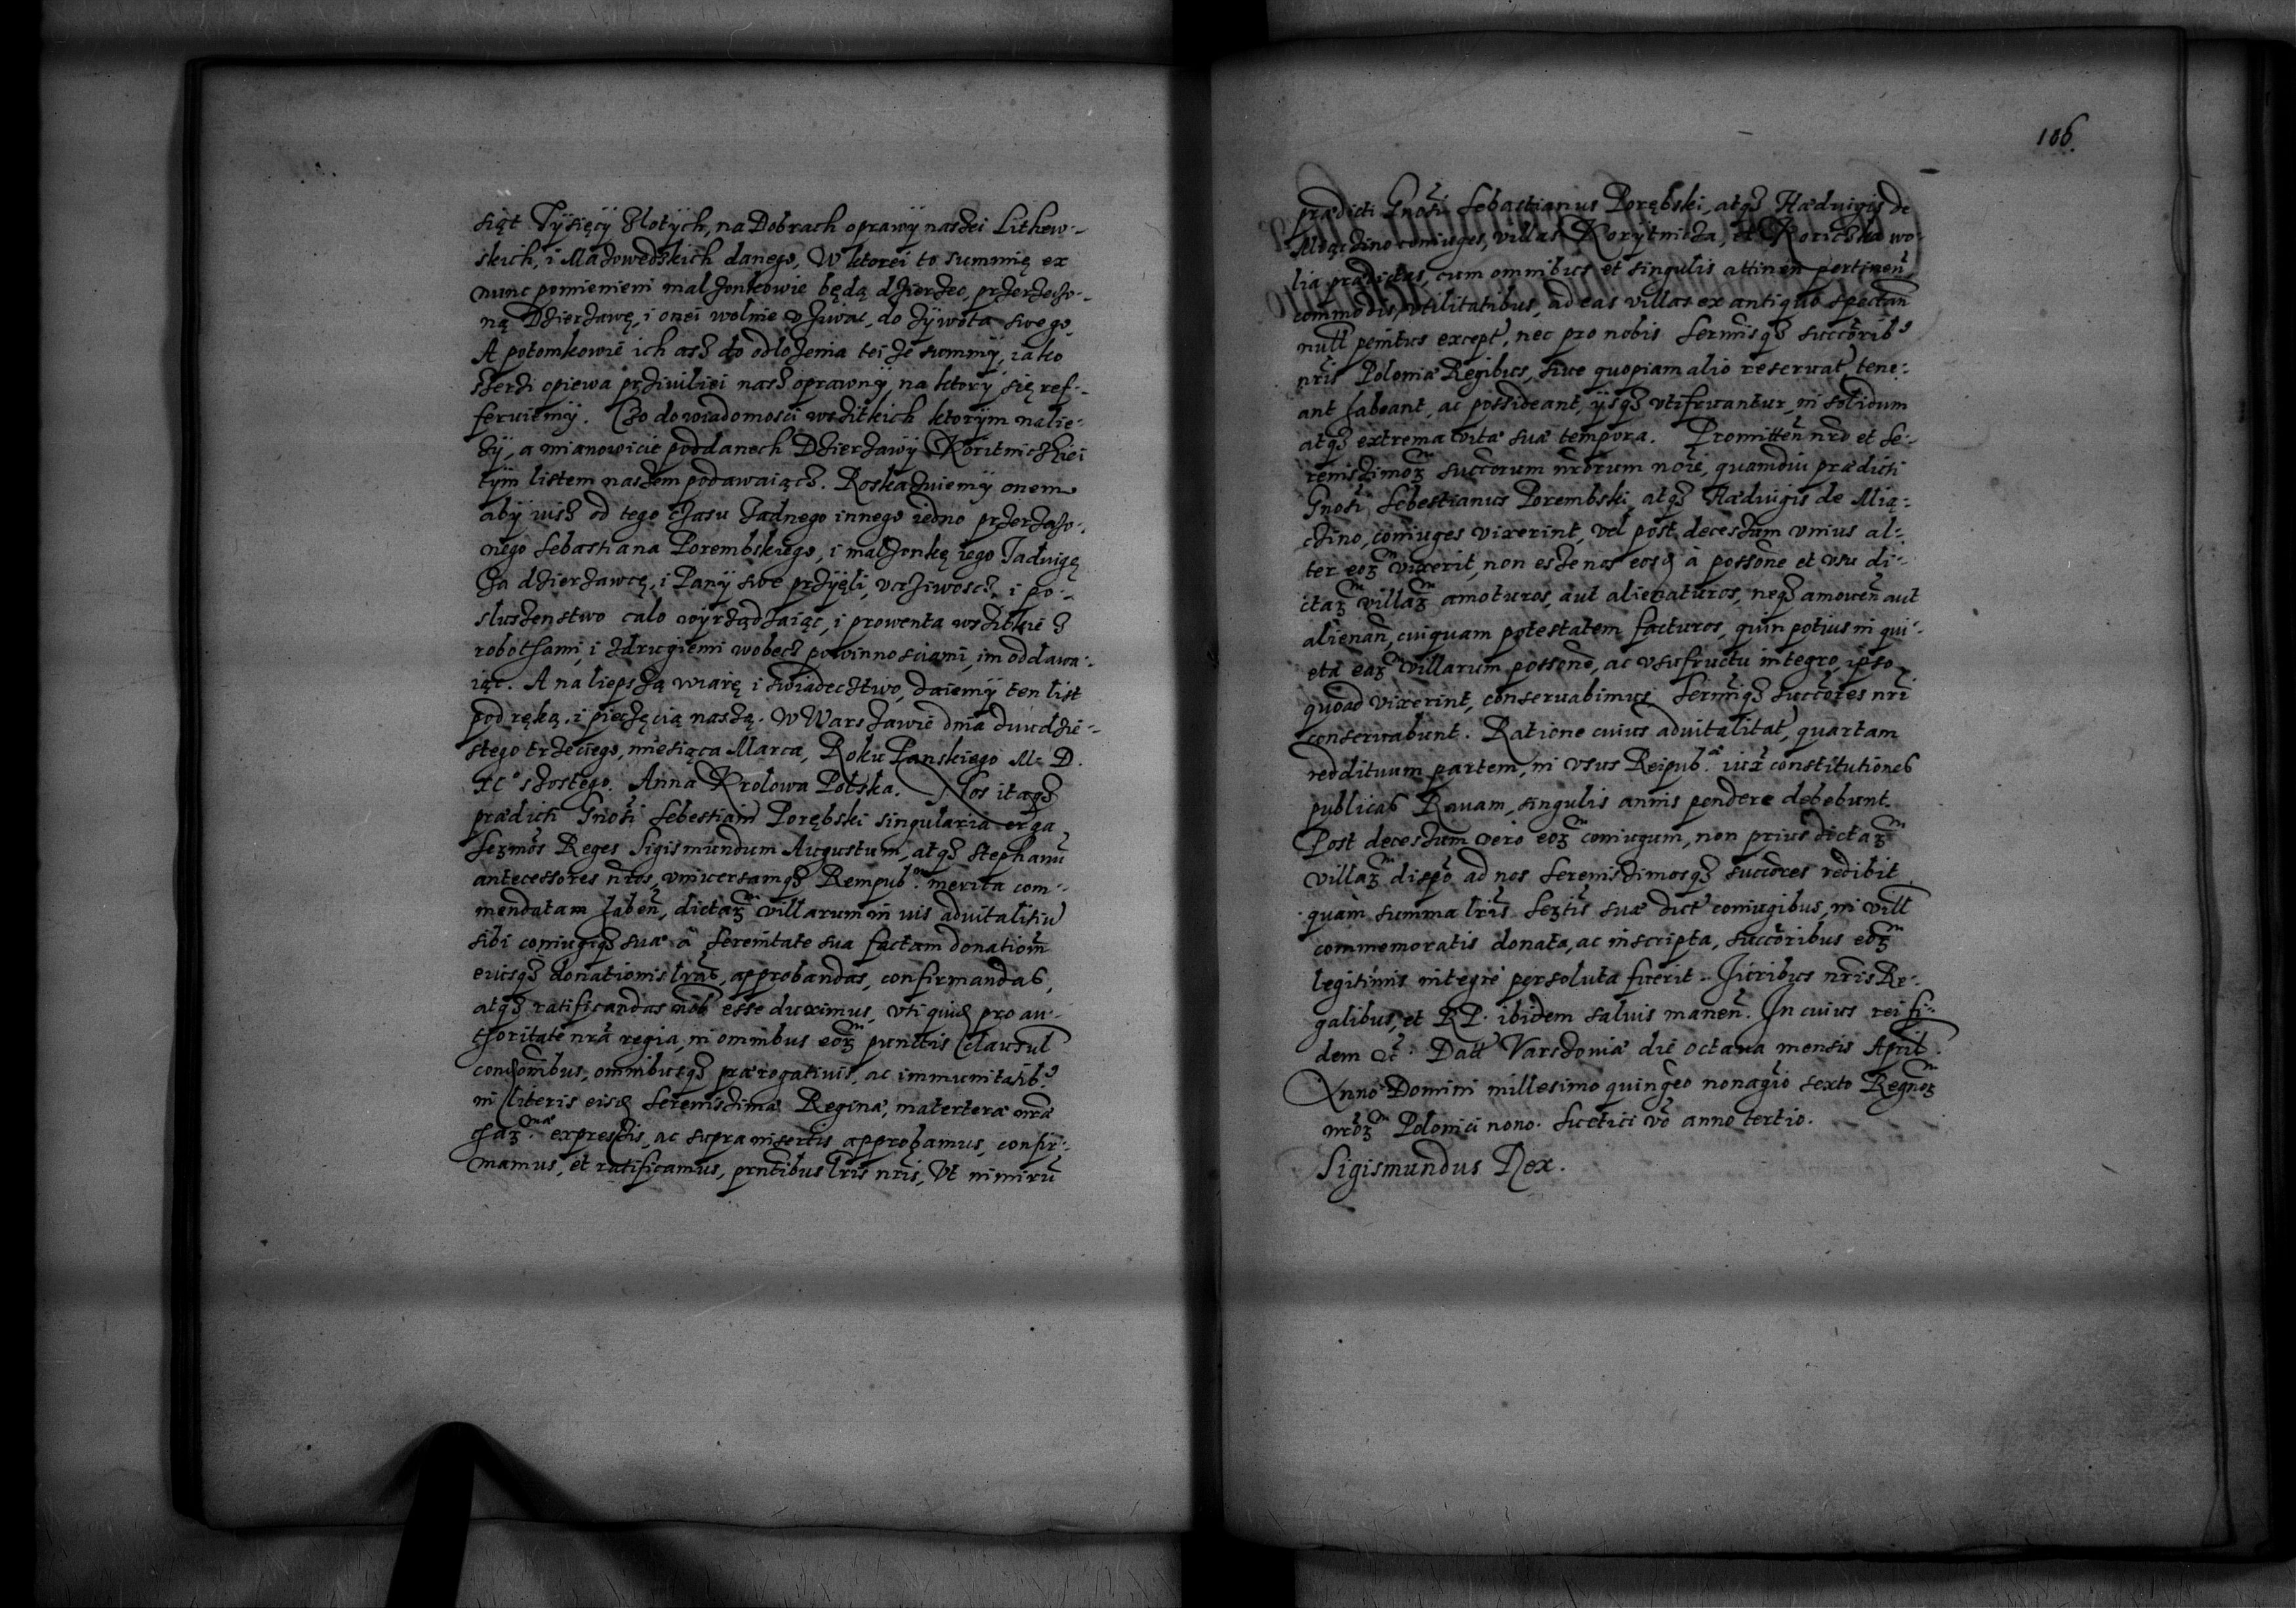 siąt Tÿsięcÿ Zlotÿch, na Dobrach oprawÿ naszei Lithew-
skich, i Mazowedskich danego, W ktorei to summię ex
nunc pomienieni malzonkowie będą dzierzec, przerzeczo-
ną Dzierzawę, i onei wolnie vzÿwac, do zÿwota swego,
A potomkowie ich asz do odlozenia tei ze summÿ, iako
szerzi opiewa prziuiliei nasz oprawnÿ, na ktorÿ się ref-
feruiemÿ. Czo do wiadomosci wszitkich ktorÿm nalie-
zÿ, a mianowicie poddanech Dzierzawÿ Koritniczkiei
tÿm listem naszem podawaiącz. Roskazuiemÿ onem
abÿ iusz od tego czasu zadnego innego iedno przerzeczo-
nego Sebastiana Porembskiego, i malzonkę iego Jadwigę
Za dzierzawcę, i Panÿ swe przÿięli, vczciwoscz, i po-
sluszenstwo calo wyrządzaiąc, i prowenta wszitkie z
robothami, i zdrugiemi wobecz powinnosciami, im oddawa-
iąc. A na liepszą wiarę i swiadecztwo, daiemÿ ten list
pod ręką, i pieczęcią naszą. W Warszawie dnia dwudzie-
stego trzeciego, miesiąca Marca, Roku Panskiego M. D.
XC° szostego. Anna Krolowa Polska. Nos itaqꝫ
prædicti Gnosi Sebestiani Porębski singularia erga
Sermos Reges Sigismundum Augustum, atqꝫ Stephanũ
antecessores nros, vniuersamqꝫ Rempub. merita com-
mendatam haben, dictarꝫ villarum in vis aduitalitiũ
sibi coniugiqꝫ suæ à Serenitate sua factam donationẽ
eiusqꝫ donationis lras, approbandas, confirmandas,
atqꝫ ratificandas nob esse duximus, vti quidꝫ pro au-
thoritate nra regia, in omnibus eorꝫ punctis clausul
condonibus, omnibusqꝫ prærogatiuis, ac immunitatib9
in literis eisdꝫ Serenissimæ Reginæ, materteræ nræ
expressis, ac supra insertis approbamus, confir-
mamus, et ratificamus, prntibus lris nris, Vt nimirũ
106.
prædicti Gnosi Sebastianus Porębski, atqꝫ Hæduigis de
Miączino coniuges, villas Korytnicza, et Koriczka wo-
lia prædictas, cum omnibus et singulis attinen pertinen
commodis, vtilitatibus, ad eas villas ex antiquo spectan
null penitus except, nec pro nobis Sermisqꝫ succorib9
nris Poloniæ Regibus, siue quopiam alio reseruat, tene-
ant habeant, ac possideant, ijsqꝫ vtifruantur, in solidum
atqꝫ extrema vitæ suæ tempora. Promitten nro et Se-
renissimorꝫ succorum nrorum noie, quamdiu prædicti
Gnosi Sebestianus Porembski, atqꝫ Hæduigis de Mią-
czino, coniuges vixerint, vel post decessum vnius al-
ter eorꝫ vixerit, non esse nos eosdꝫ à possone et vsu di-
ctarꝫ villarꝫ amoturos, aut alienaturos, neqꝫ amouen aut
alienan, cuiquam potestatem facturos, quin potius in qui-
eta earꝫ villarum possone, ac vsufructu integro, ipso
quoad vixerint, conseruabimus, Sermiqꝫ succores nri
conseruabunt. Ratione cuius aduitalitat, quartam
reddituum partem, in vsus Reipub. iux constitutiones
publicas Rauam, singulis annis pendere debebunt.
Post decessum vero eorꝫ coniugum, non prius dictarꝫ
villarꝫ dispo ad nos Serenissimosqꝫ succores redibit
quam summa lris Sertis suæ dict coniugibus, in vill
commemoratis donata, ac inscripta, succoribus eorꝫ
legitimis integre persoluta fuerit. Juribus nris Re-
galibus, et RP. ibidem saluis manen. In cuius rei fi-
dem &c. Datt Varszouiæ die octaua mensis April.
Anno Domini millesimo quingeo nonagio sexto Regnorꝫ
nrorꝫ Polonici nono. Suetici vo anno tertio.
Sigismundus Rex.